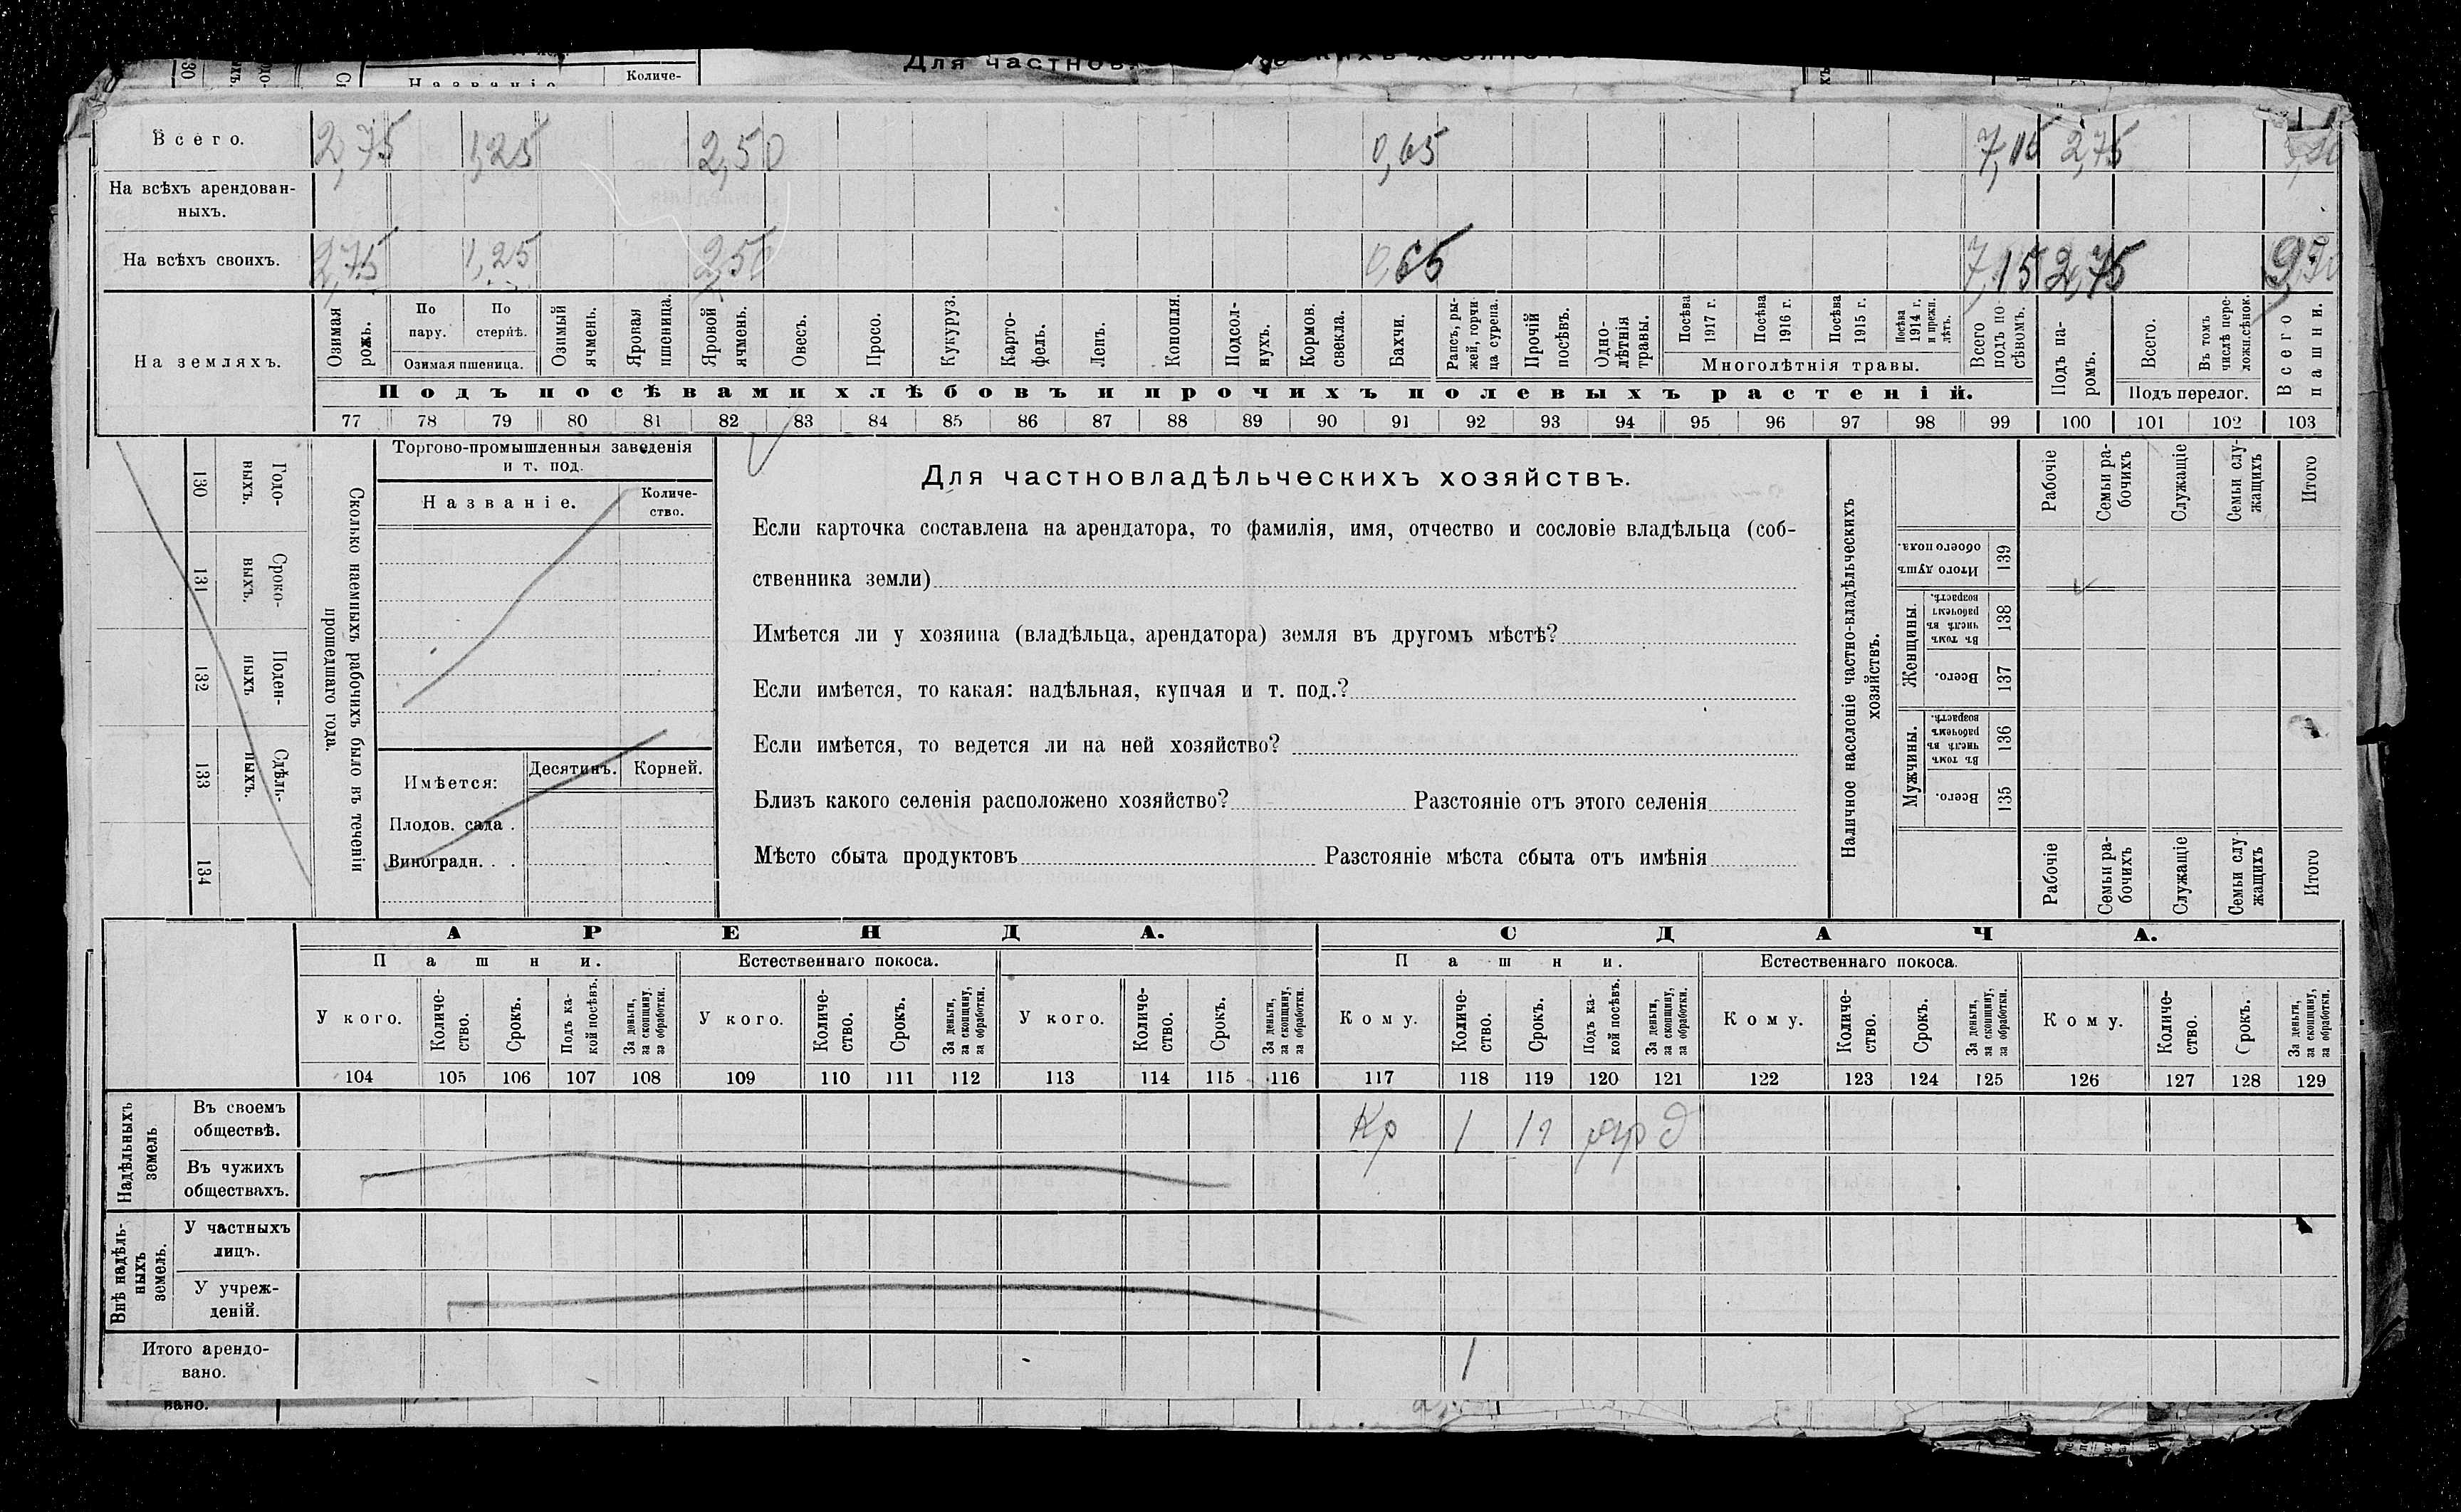 Для частнов
Названіе
Количе-
Всего. 2,75 1,25 2,50 0,65 7,15 2,75
На всѣхъ арендован-
ныхъ.
На всѣхъ своихъ. 2,75 1,25 2,50 0,65 7,15 2,75 9,90
На земляхъ.
Озимая рожь.
По пару.
По стернѣ.
Озимая пшеница.
Озимый ячмень.
Яровая пшеница.
Яровой ячмень.
Овесъ.
Просо.
Кукуруз.
Карто-
фель.
Ленъ.
Конопля.
Подсол-
нухъ.
Кормов. свекла.
Бахчи.
Рапсъ, ры-
жей, горчи
ца сурепа.
Прочій посѣвъ.
Одно-
лѣтнія травы.
Посѣва 1917 г.
Посѣва 1916 г.
Посѣва 1915 г.
Посѣва 1914 г. и прежн. лѣтъ.
Многолѣтнія травы.
Всего подъ по-
сѣвомъ.
Подъ па-
ромъ.
Всего.
Въ томъ числѣ пере-
ложн. сѣнок.
Подъ перелог.
Всего пашни.
Подъ посѣвами хлѣбовъ и прочихъ полевыхъ растеній.
77 78 79 80 81 82 83 84 85 86 87 88 89 90 91 92 93 94 95 96 97 98 99 100 101 102 103
130 Годо-
выхъ.
131 Сроко-
выхъ.
132 Поден-
ныхъ
133 Сдѣль-
ныхъ.
134
Сколько наемныхъ рабочихъ было въ теченіи
прошедшаго года.
Торгово-промышленныя заведенія
и т. под.
Названіе.
Количе-
ство.
Имѣется:
Десятинъ. Корней.
Плодов. сада .
Виноградн. . .
Для частновладѣльческихъ хозяйствъ.
Если карточка составлена на арендатора, то фамилія, имя, отчество и сословіе владѣльца (соб-
ственника земли)
Имѣется ли у хозяина (владѣльца, арендатора) земля въ другомъ мѣстѣ?
Если имѣется, то какая: надѣльная, купчая и т. под.?
Если имѣется, то ведется ли на ней хозяйство?
Близъ какого селенія расположено хозяйство? Разстояніе отъ этого селенія
Мѣсто сбыта продуктовъ Разстояніе мѣста сбыта отъ имѣнія
Наличное населеніе частно-владѣльческихъ
хозяйствъ.
Рабочіе
Семьи ра-
бочихъ
Служащіе
Семьи слу-
жащихъ
Итого
Итого душъ обоего пола. 139
Женщины.
Въ томъ числѣ въ рабочемъ возрастѣ. 138
Всего. 137
Мужчины.
Въ томъ числѣ въ рабочемъ возрастѣ. 136
Всего. 135
Рабочіе
Семьи ра-
бочихъ
Служащіе
Семьи слу
жащихъ
Итого
АРЕНДА. СДАЧА.
Пашни. Естественнаго покоса. Пашни. Естественнаго покоса.
У кого.
Количе-
ство.
Срокъ.
Подъ ка-
кой посѣвъ.
За деньги, за скопщину, за обработки.
У кого.
Количе-
ство.
Срокъ.
За деньги, за скопщину, за обработки.
У кого.
Количе-
ство.
Срокъ.
За деньги, за скопщину, за обработки.
Кому.
Количе-
ство.
Срокъ.
Подъ ка-
кой посѣвъ.
За деньги, за скопщину, за обработки.
Кому.
Количе-
ство.
Срокъ.
За деньги, за скопщину, за обработки.
Кому.
Количе-
ство.
Срокъ.
За деньги, за скопщину, за обработки.
104 105 106 107 108 109 110 111 112 113 114 115 116 117 118 119 120 121 122 123 124 125 126 127 128 129
Надѣльныхъ
земель
Въ своемъ
обществѣ.
Кр 1 1г яр д
Въ чужихъ
обществахъ.
Внѣ надѣль-
ныхъ
земель.
У частныхъ
лицъ.
У учреж-
деній.
Итого арендо-
вано.
1
вано.